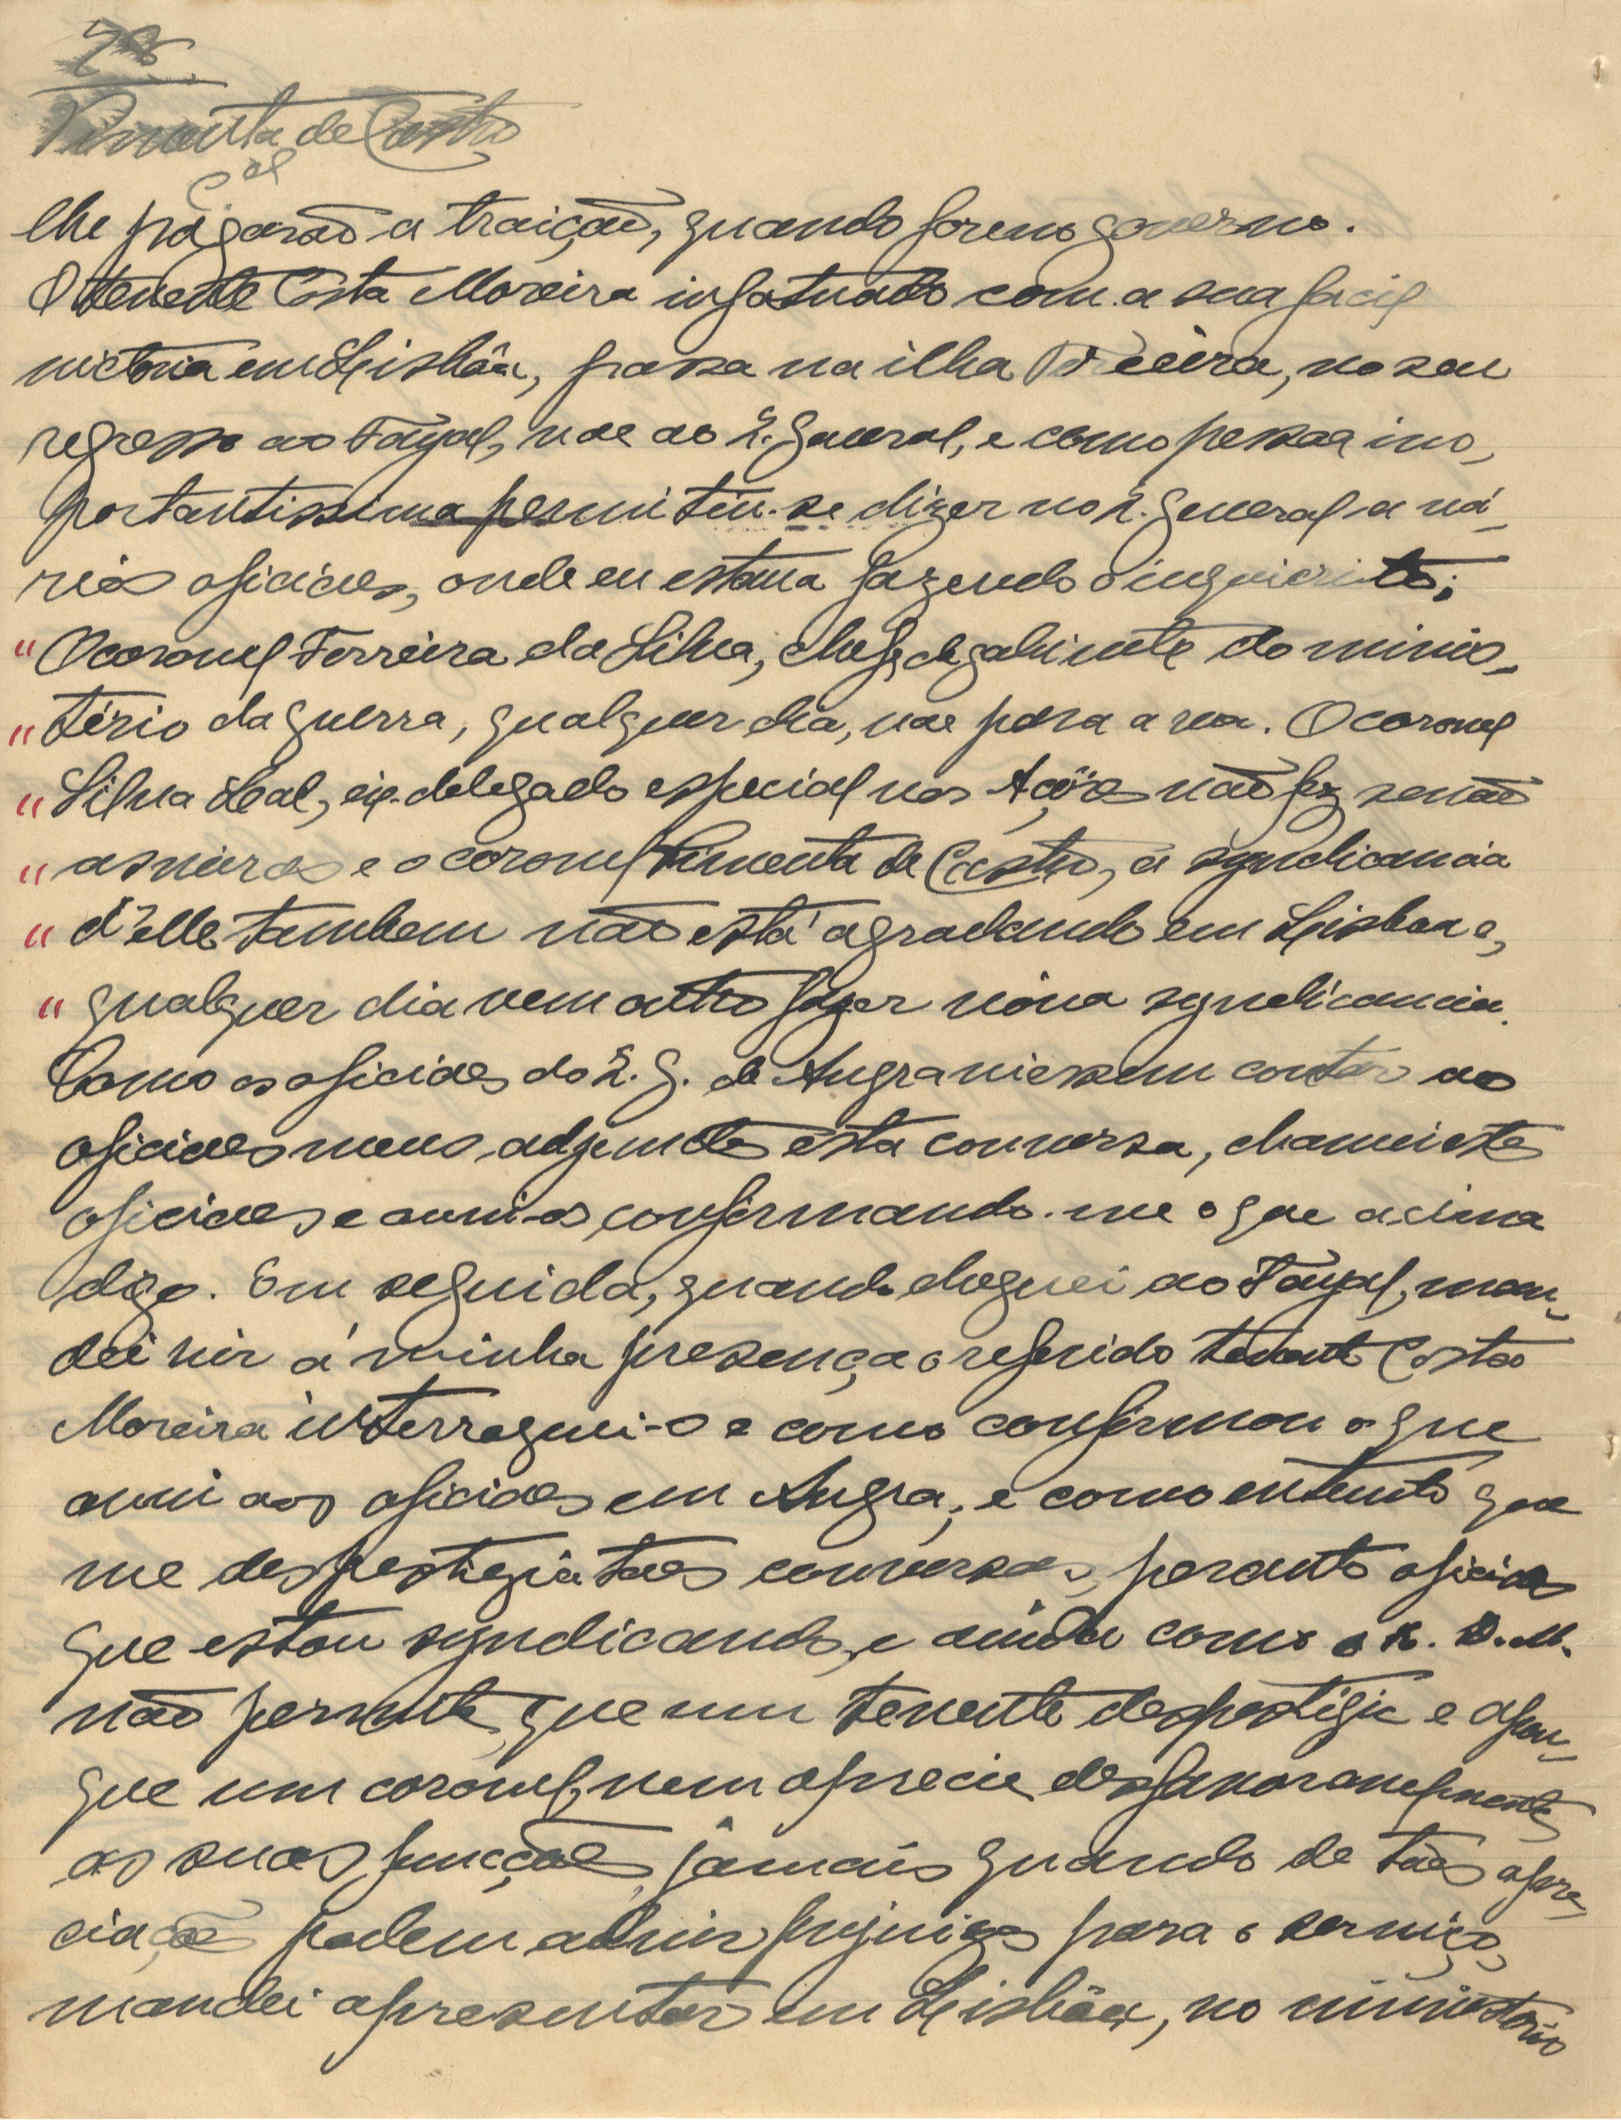 Pimenta de Castro
Cel
lhe pagarão a traição, quando forem governo.
O tenente Costa Moreira infatuado com a sua facil
victoria em Lisbôa, passa na ilha Terceira, no seu
regresso ao Fayal, vae ao Q. General, e como pessoa im-
portantissima permitiu-se dizer no Q. General a vá-
rios oficiaes, onde eu estava fazendo o inquerito;
"O coronel Ferreira da Silva, chefe de gabinete do minis-
"tério da guerra, qualquer dia, vae para a rua. O coronel
"Silva Leal, ex-delegado especial nos Açôres não fez senão
"asneiras e o coronel Pimenta de Castro, a syndicancia
"d'elle tambem não está agradando em Lisboa e,
"qualquer dia vem outro fazer nova syndicancia.
Como os oficiaes do Q. G. de Angra viessem contar aos
oficiaes meus adjuntos esta conversa, chamei estes
oficiaes e ouvi-os confirmando-me o que acima
digo. Em seguida, quando cheguei ao Fayal, man-
dei vir á minha presença o referido tenente Costa
Moreira interroguei-o e como confirmou o que
ouvi aos oficiaes em Angra, e como entendo que
me desprestigia taes conversas, perante oficiaes
que estou syndicando, e ainda como o R. D. M.
não permite que um tenente desprestigie e
que um coronel, nem aprecie desfavoravelmente
as suas funcções, jámais quando de taes apre-
ciações podem advir prejuizos para o serviço,
mandei apresentar em Lisbôa, no ministério